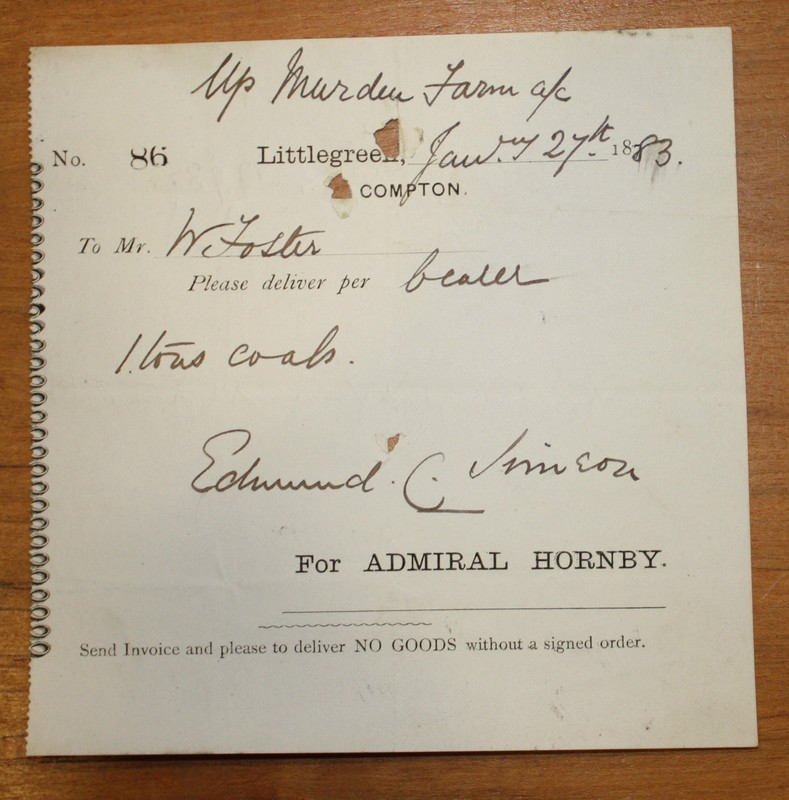 Up Marden Farm a/c
No. 86 Littlegreen, Jany. 27th. 1883.
COMPTON.
To Mr. W Foster
Please deliver per bearer
1. tons coals.
Edmund. C. Simeon
For ADMIRAL HORNBY.
Send Invoice and please to deliver NO GOODS without a signed order.